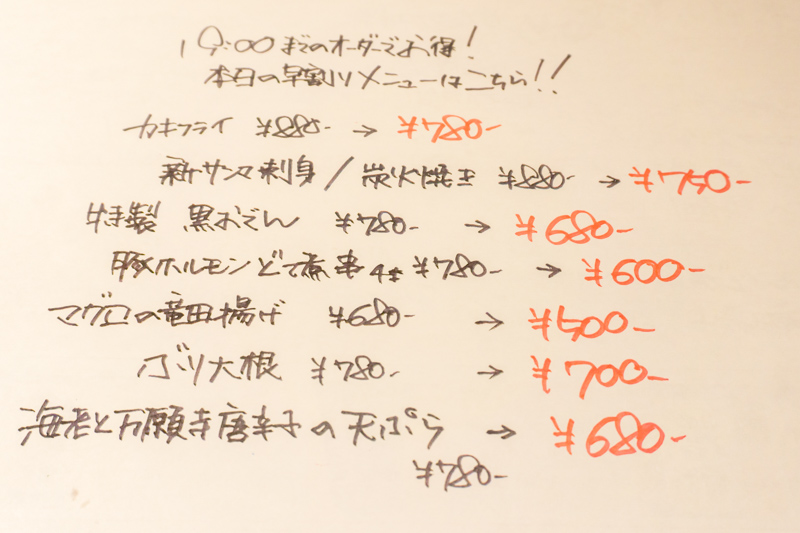 19:00までのオーダーでお得!
本日の早割りメニューはこちら!!
カキフライ ¥880- → ¥780-
新サンマ刺身/炭火焼き ¥880- → ¥750-
特製 黒おでん ¥780- → ¥680-
豚ホルモンどて煮串4本 ¥780- → ¥600-
マグロの竜田揚げ ¥680- → ¥500-
ブリ大根 ¥780- → ¥700-
海老と万願寺唐辛子の天ぷら → ¥680-
¥780-